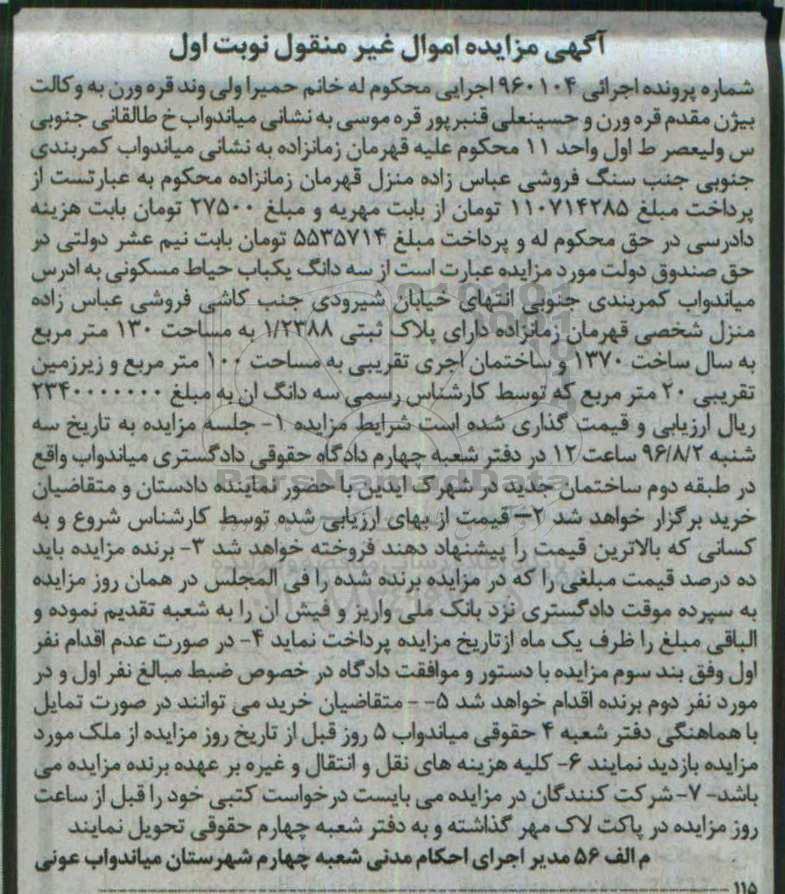 آگهی مزایده اموال غیر منقول نوبت اول
شماره پرونده اجرائی ۹۶۰۱۰۴ اجرایی محکوم له خانم حمیرا ولی وند قره ورن به وکالت
بیژن مقدم قره ورن و حسینعلی قنبرپور قره موسی به نشانی میاندواب خ طالقانی جنوبی
س ولیعصر ط اول واحد ۱۱ محکوم علیه قهرمان زمانزاده به نشانی میاندواب کمربندی
جنوبی جنب سنگ فروشی عباس زاده منزل قهرمان زمانزاده محکوم به عبارتست از
پرداخت مبلغ ۱۱۰۷۱۴۲۸۵ تومان از بابت مهریه و مبلغ ۲۷۵۰۰ تومان بابت هزینه
دادرسی در حق محکوم له و پرداخت مبلغ ۵۵۳۵۷۱۴ تومان بابت نیم عشر دولتی در
حق صندوق دولت مورد مزایده عبارت است از سه دانگ یکباب حیاط مسکونی به ادرس
میاندواب کمربندی جنوبی انتهای خیابان شیرودی جنب کاشی فروشی عباس زاده
منزل شخصی قهرمان زمانزاده دارای پلاک ثبتی ۱/۲۳۸۸ به مساحت ۱۳۰ متر مربع
به سال ساخت ۱۳۷۰ و ساختمان اجری تقریبی به مساحت ۱۰۰ متر مربع و زیرزمین
تقریبی ۲۰ متر مربع که توسط کارشناس رسمی سه دانگ ان به مبلغ ۲۳۴۰۰۰۰۰۰۰
ریال ارزیابی و قیمت گذاری شده است شرایط مزایده ۱- جلسه مزایده به تاریخ سه
شنبه ۹۶/۸/۲ ساعت ۱۲ در دفتر شعبه چهارم دادگاه حقوقی دادگستری میاندواب واقع
در طبقه دوم ساختمان جدید در شهرک ایدین با حضور نماینده دادستان و متقاضیان
خرید برگزار خواهد شد ۲- قیمت از بهای ارزیابی شده توسط کارشناس شروع و به
کسانی که بالاترین قیمت را پیشنهاد دهند فروخته خواهد شد ۳- برنده مزایده باید
ده درصد قیمت مبلغی را که در مزایده برنده شده را فی المجلس در همان روز مزایده
به سپرده موقت دادگستری نزد بانک ملی واریز و فیش ان را به شعبه تقدیم نموده و
الباقی مبلغ را ظرف یک ماه ازتاریخ مزایده پرداخت نماید ۴- در صورت عدم اقدام نفر
اول وفق بند سوم مزایده با دستور و موافقت دادگاه در خصوص ضبط مبالغ نفر اول و در
مورد نفر دوم برنده اقدام خواهد شد ۵- - متقاضیان خرید می توانند در صورت تمایل
با هماهنگی دفتر شعبه ۴ حقوقی میاندواب ۵ روز قبل از تاریخ روز مزایده از ملک مورد
مزایده بازدید نمایند ۶- کلیه هزینه های نقل و انتقال و غیره بر عهده برنده مزایده می
باشد- ۷- شرکت کنندگان در مزایده می بایست درخواست کتبی خود را قبل از ساعت
روز مزایده در پاکت لاک مهر گذاشته و به دفتر شعبه چهارم حقوقی تحویل نمایند
م الف ۵۶ مدیر اجرای احکام مدنی شعبه چهارم شهرستان میاندواب عونی
۱۱۵
ParsNamadData